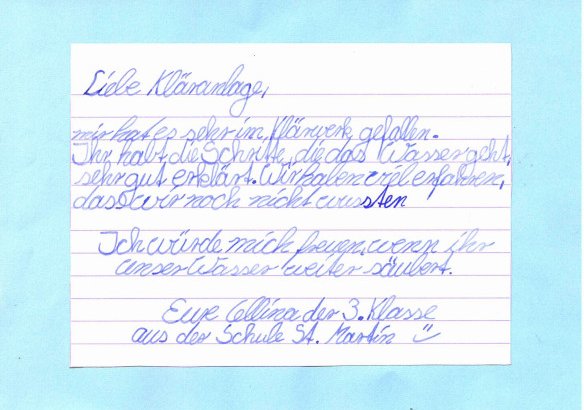 Liebe Kläranlage,
mir hat es sehr im Klärwerk gefallen.
Ihr habt die Schritte, die das Wasser geht,
sehr gut erklärt. Wir haben viel erfahren,
dass wir noch nicht wussten
Ich würde mich freuen, wenn ihr
unser Wasser weiter säubert.
Eure der 3. Klasse
aus der Schule St. Martin